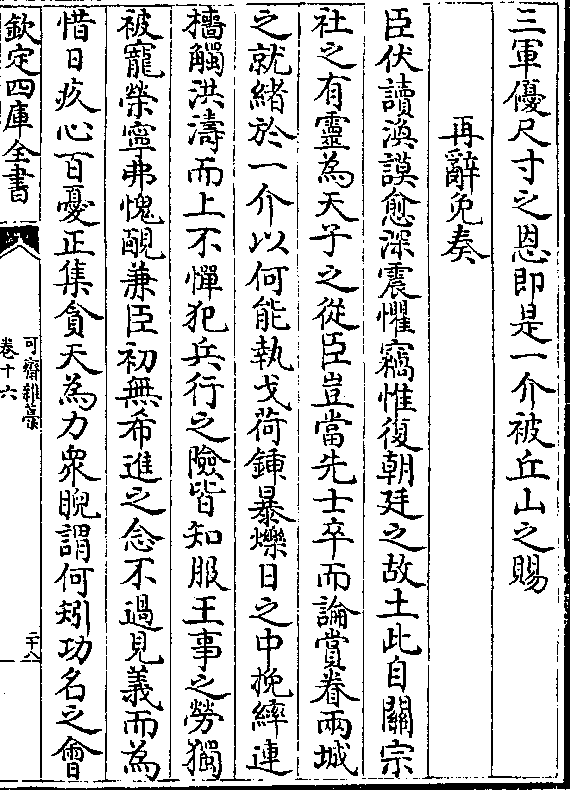 三軍優尺寸之恩即是一介被丘山之賜
再辭免奏
臣伏讀渙謨愈深震懼竊惟復朝廷之故土此自關宗
社之有靈為天子之從臣豈當先士卒而論賞眷兩城
之就緒於一介以何能執戈荷鍤暴爍日之中挽縴連
檣觸洪濤而上不憚犯兵行之險皆知服王事之勞獨
被寵榮寧弗愧靦兼臣初無希進之念不過見義而為
惜日疚心百憂正集貪天為力衆睨謂何矧功名之會
欽定四庫全書
可齋雜藁
卷十六
二十八